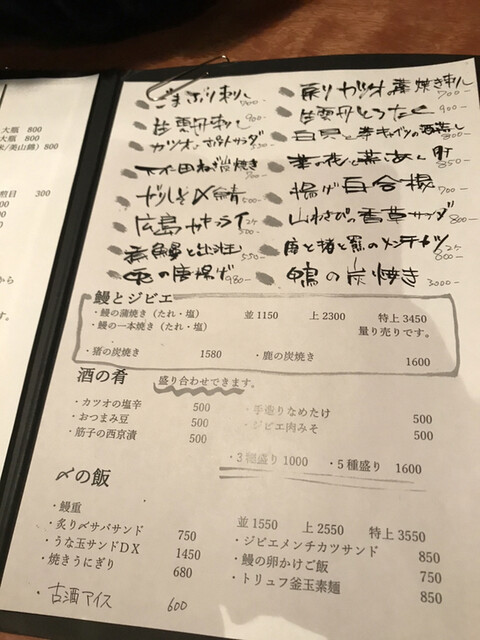 大瓶 800
大瓶 800
米/美山錦) 800
煎目 300
から
す。
ごまぶり刺し 700
戻りガツオの藁焼き刺し 700
生雲丹刺し
生雲丹とろたく
カツオ、
下仁田ねぎ炭焼き
ガリしそ〆鯖 500
揚げ百合根 700
広島カキフライ 2ケ 500
山わさびの香草サラダ 800
550
鹿と猪と熊のメンチカツ 2ケ 800
の唐揚げ 980
鴨の炭焼き 3000
鰻とジビエ
・鰻の蒲焼き(たれ・塩) 並 1150 上 2300 特上 3450
・鰻の一本焼き(たれ・塩) 量り売りです。
・猪の炭焼き 1580 ・鹿の炭焼き 1600
酒の肴 盛り合わせできます。
・カツオの塩辛 500 ・手造りなめたけ 500
・おつまみ豆 500 ・ジビエ肉みそ 500
・筋子の西京漬 500
・3種盛り 1000 ・5種盛り 1600
〆の飯
・鰻重 並 1550 上 2550 特上 3550
・炙り〆サバサンド 750 ・ジビエメンチカツサンド 850
・うな玉サンドDX 1450 ・鰻の卵かけご飯 750
・焼きうにぎり 680 ・トリュフ釜玉素麺 850
・古酒アイス 600